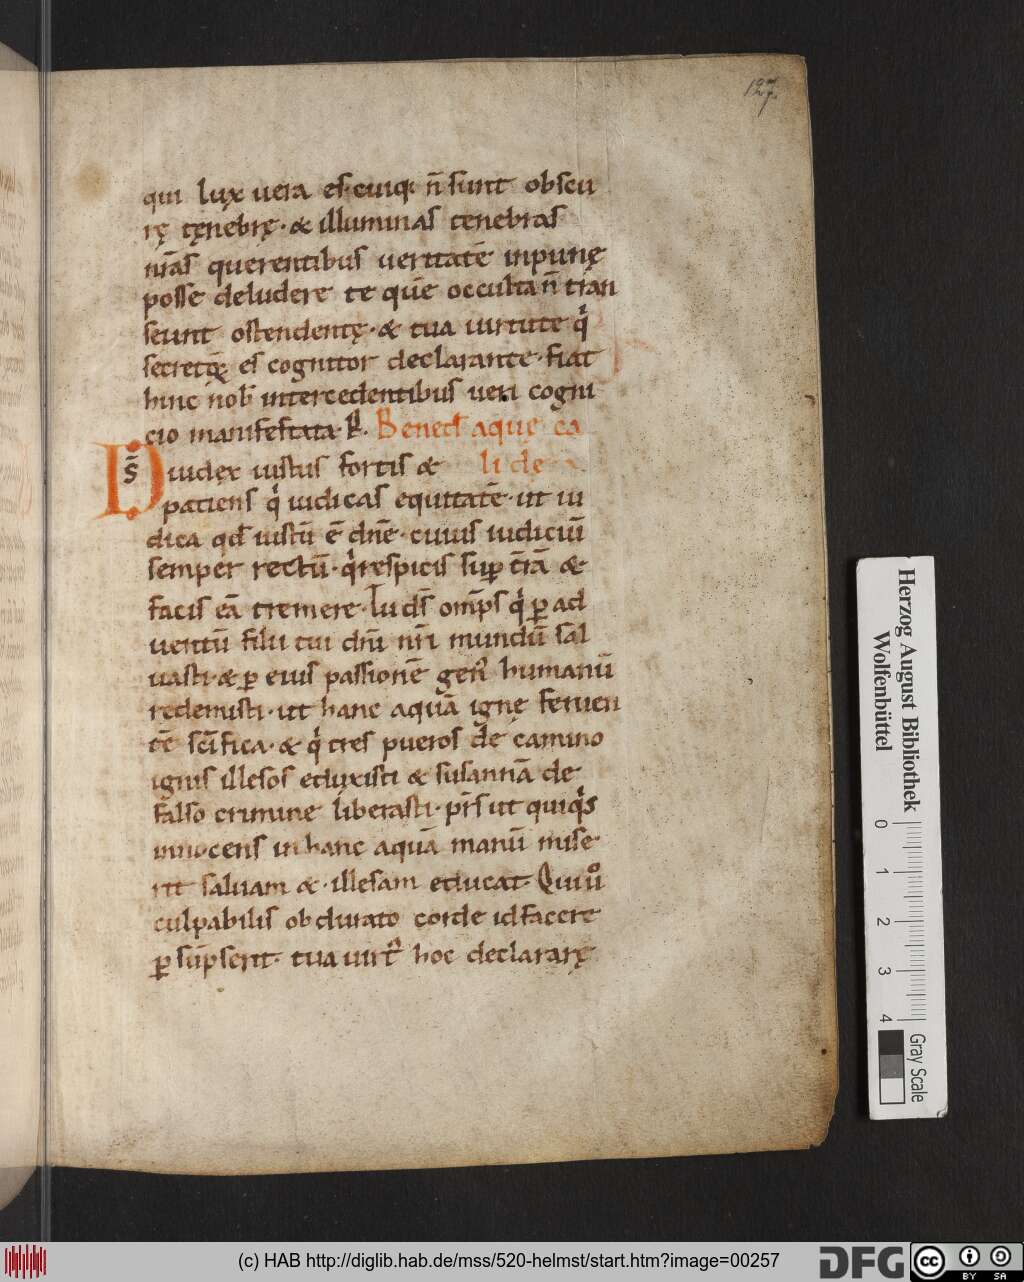 127
qui lux uera es. cuiq; n̄ sunt obscu
rę tęnebrę. & illuminas tenebras
nr̄as querentibus ueritatē inpunę
posse deludere te quē occulta n̄ trān
seunt ostendentę. & tua uirtute q͛
secretoꝝ es cognitor declarante. fiat
hinc nob̄ intercedentibus ueri cogni
cio manifestata. P̄. Bened̄ aquę ca
D s̄ iudex iustus fortis & lide
patiens q͛ iudicas equitatē. ut iu
dica qd̄ iustū ē dn̄e. cuius iudiciū
semper rectū. q͛ respicis sup t̄rā &
facis eā tremere. Tu ds̄ omp̄s q͛ ꝑ ad
uentū filii tui dn̄i nr̄i mundū sal
uasti. & ꝑ eius passionē gen͛ humanū
redemisti. ut hanc aquā ignę feruen
tē sc̄ifica. & q͛ tres pueros de camino
ignis illesos eduxisti & susannā de
falso crimine liberasti. pr̄s ut quiq͛s
innocens in hanc aquā manū mise
rit saluam & illesam educat. Qui uº
culpabilis obdurato corde id facere
ꝑsūpserit. tua uirt͛ hoc declararę
Herzog August Bibliothek
Wolfenbüttel
0 1 2 3 4
Gray Scale
(c) HAB http://diglib.hab.de/mss/520-helmst/start.htm?image=00257
DFG
cc BY SA